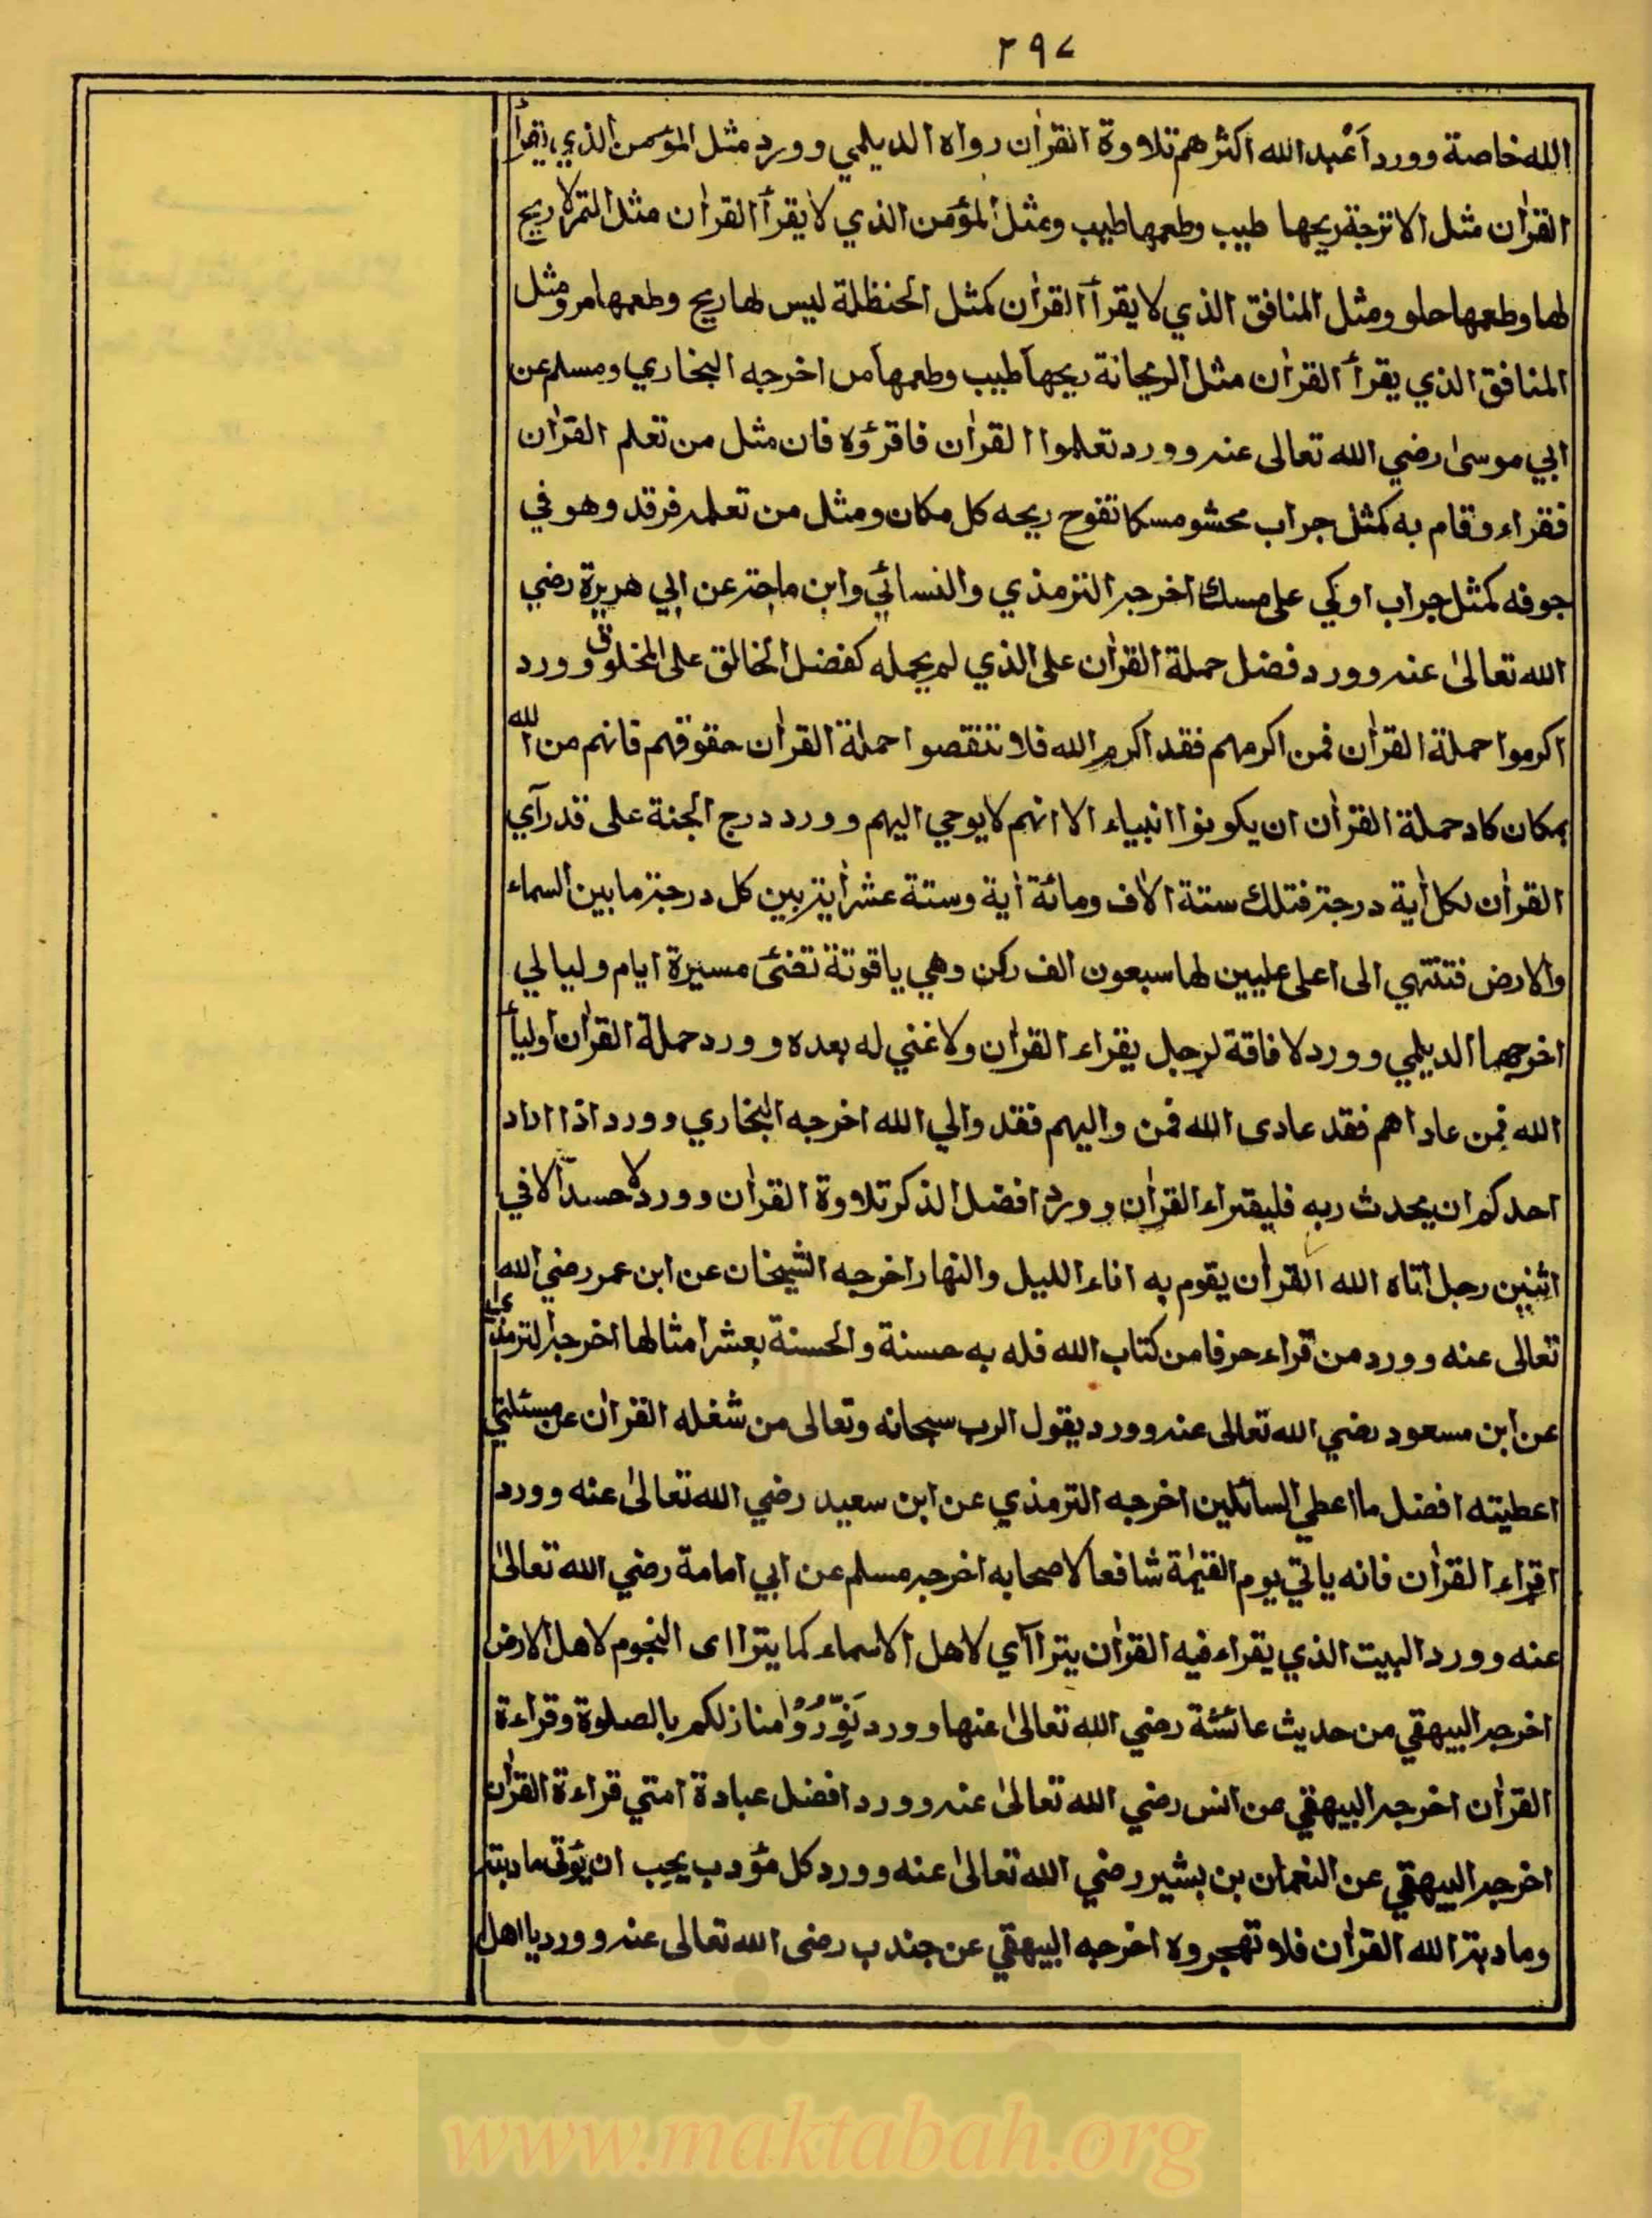 ٢٩٧
الله خاصة وورد أعْبد الله اكثرهم تلاوة القرأن رواه الديلمي وورد مثل المؤمن الذي يقرأ
القرأن مثل الاترجة ريحها طيب وطعمها طيب ومثل المؤمن الذي لا يقرأ القرأن مثل التمر لا ريح
لها وطعمها حلو ومثل المنافق الذي لا يقرأ القرأن كمثل الحنظلة ليس لها ريح وطعمها مر ومثل
المنافق الذي يقرأ القرأن مثل الريحانة ريحها طيب وطعمها مر اخرجه البخاري ومسلم عن
ابي موسىٰ رضي الله تعالى عنه وورد تعلموا القرأن فاقرؤه فان مثل من تعلم القرأن
فقراء وقام به كمثل جراب محشو مسكا تفوح ريحه كل مكان ومثل من تعلمه فرقد وهو في
جوفه كمثل جراب اوكي على مسك اخرجه الترمذي والنسائي وابن ماجة عن ابي هريرة رضي
الله تعالىٰ عنه وورد فضل حملة القرأن على الذي لم يحمله كفضل الخالق على المخلوق وورد
اكرموا حملة القرأن فمن اكرمهم فقد اكرم الله فلا تنقصوا حملة القرأن حقوقهم فانهم من الله
بمكان كاد حملة القرأن ان يكونوا انبياء الا انهم لا يوحي اليهم وورد درج الجنة على قدر آي
القرأن لكل أية درجة فتلك ستة الأف ومائة أية وستة عشر أية بين كل درجة ما بين السماء
والارض فتنتهي الى اعلى عليين لها سبعون الف ركن وهي ياقوتة تضئ مسيرة ايام وليالي
اخرجهما الديلمي وورد لا فاقة لرجل يقراء القرأن ولا غني له بعده وورد حملة القرأن اوليأ
الله فمن عاداهم فقد عادى الله فمن واليهم فقد والي الله اخرجه البخاري وورد اذا اراد
احدكم ان يحدث ربه فليقراء القرأن وورد افضل الذكر تلاوة القرأن وورد لا حسد الا في
اثنين رجل اتاه الله القرأن يقوم به اناء الليل والنهار اخرجه الشيخان عن ابن عمر رضي الله
تعالى عنه وورد من قراء حرفا من كتاب الله فله به حسنة والحسنة بعشر امثالها اخرجه الترمذي
عن ابن مسعود رضي الله تعالى عنه وورد يقول الرب سبحانه وتعالى من شغله القرأن عن مسئلتي
اعطيته افضل ما اعطي السائلين اخرجه الترمذي عن ابن سعيد رضي الله تعالىٰ عنه وورد
اقراء القرأن فانه ياتي يوم القيٰمة شافعا لاصحابه اخرجه مسلم عن ابي امامة رضي الله تعالىٰ
عنه وورد البيت الذي يقراء فيه القرأن يتراآي لاهل الاسماء كما يترااى النجوم لاهل الارض
اخرجه البيهقي من حديث عائشة رضي الله تعالىٰ عنها وورد نَوِّرُوْا منازلكم بالصلوة وقراءة
القرأن اخرجه البيهقي من انس رضي الله تعالىٰ عنه وورد افضل عبادة امتي قراءة القرأن
اخرجه البيهقي عن النعمان بن بشير رضي الله تعالىٰ عنه وورد كل مؤدب يحب ان يؤتى مادبته
ومادبة الله القرأن فلا تهجروه اخرجه البيهقي عن جندب رضى الله تعالى عنه وورد يا اهل
www.maktabah.org